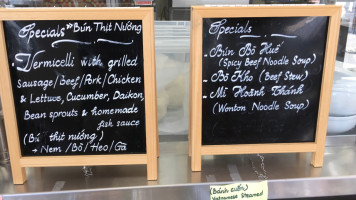 Specials "Bún Thịt Nướng
. Vermicelli with grilled
Sausage/Beef/Pork/Chicken
& Lettuce, Cucumber, Daikon,
Bean sprouts & homemade
fish sauce
(Bú thịt nướng)
→ Nem/Bò/Heo/Gà
Specials
- Bún Bò Huế
(Spicy Beef Noodle Soup)
- Bò Kho (Beef Stew)
- Mì Hoành Thánh
(Wonton Noodle Soup)
(Bánh cuốn)
Vietnamese Steamed